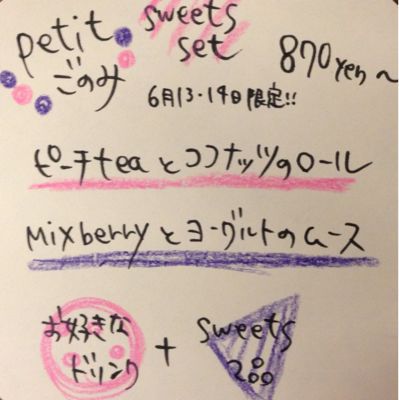 petit
ごのみ
sweets
set
870yen～
6月13・14日限定!!
ピーチteaとココナッツのロール
Mixberryとヨーグルトのムース
お好きな
ドリンク
+
sweets
200